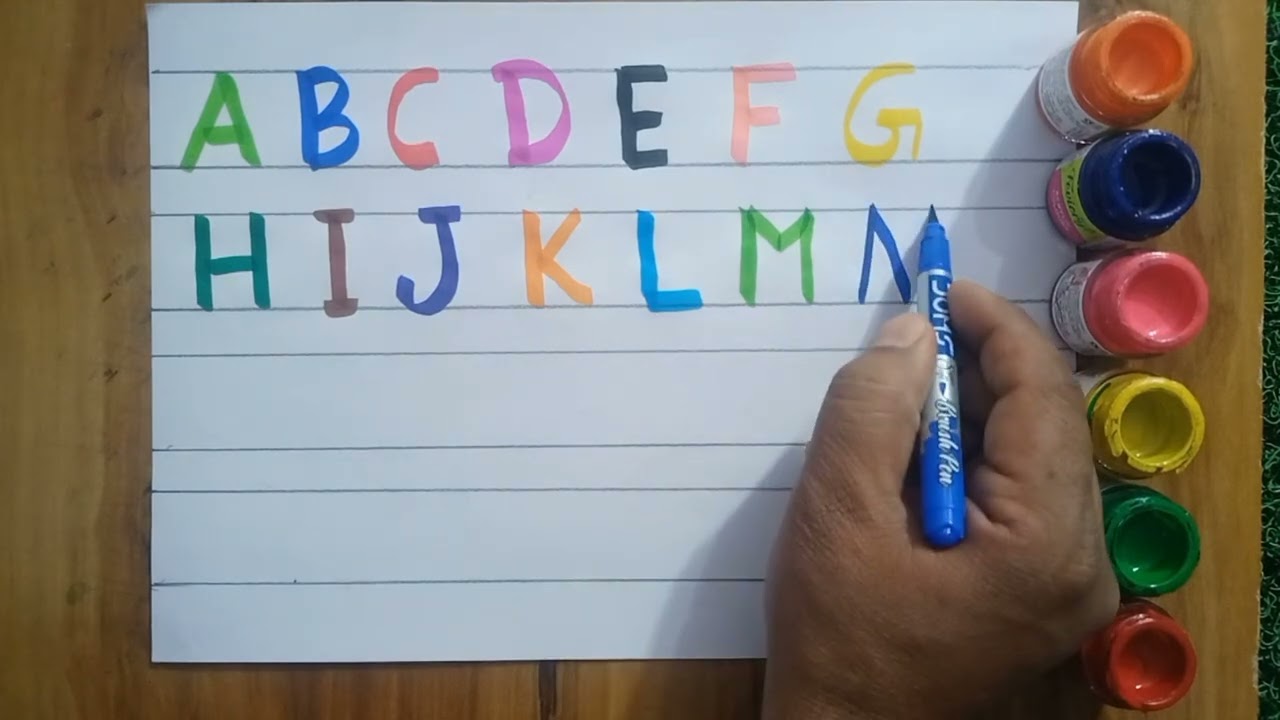 A B C D E F G
H I J K L M N
Brush Pen